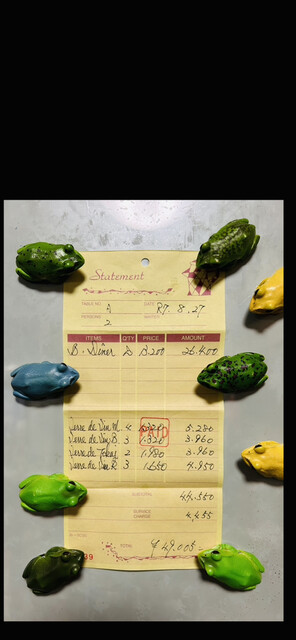 Statement
TABLE NO. A DATE R7. 8. 27
PERSONS 2 WAITER
ITEMS QTY PRICE AMOUNT
B. Dîner 2 13.200 26.400
Verre de Vin M. 4 5.280
Verre de Vin B. 3 1.320 3.960
PAID
Verre de Tokaj 2 1.980 3.960
Verre de Vin R. 3 1.650 4.950
SUBTOTAL 44.550
SERVICE CHARGE 4,455
TOTAL ¥ 49.005-